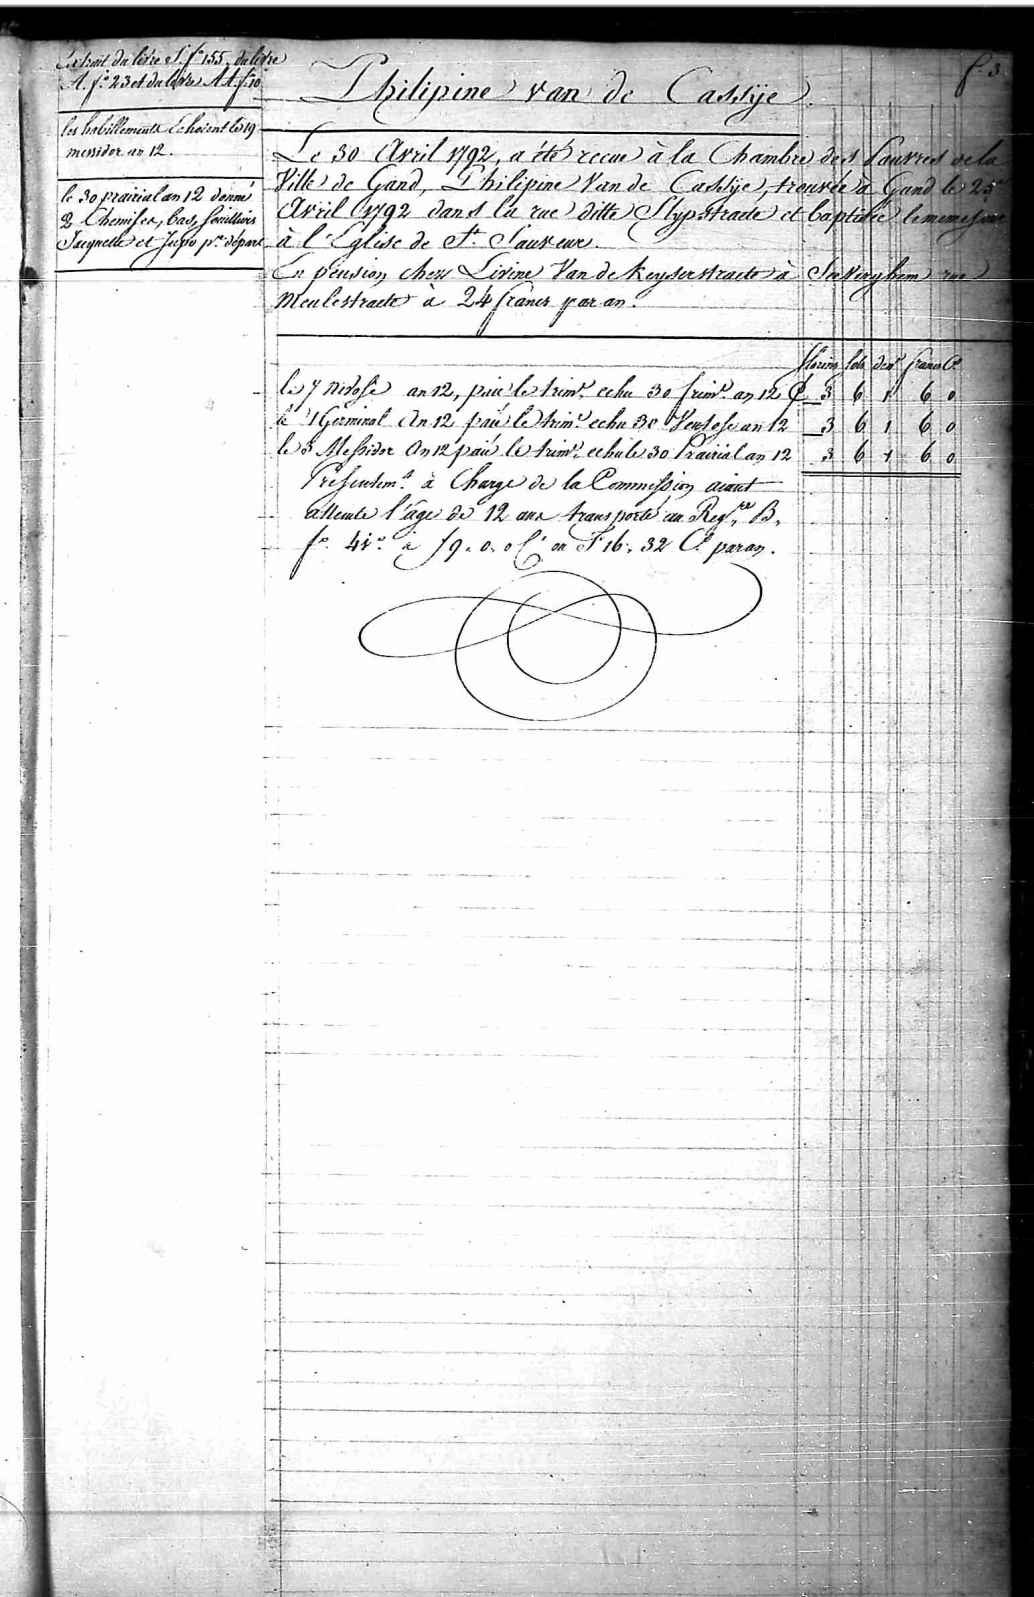 f.º 3
Extrait du livre S. fº 155, du livre
A. fº 23 et du livre AA. fº 10
les habillements Echoient le 19
messidor an 12.
le 30 prairial an 12 donné
2 Chemises, bas, souilliers
Jaquette et Jupo pr. départ
Philipine van de Cassije
Le 30 Avril 1792, a été recue à la Chambre des Pauvres de la
Ville de Gand, Philipine Van de Cassije, trouvée à Gand le 25
Avril 1792 dans la rue ditte Slypstraete et baptisée le meme jour
à l'Eglise de St. Sauveur.
En pension chez Livine Van de Keyserstraete à Seeverghem rue
Meulestraete à 24 francs par an.
florins sols denrs francs Cs
le 7 nivose an 12, paié le trimre echu 30 frimre an 12 3 6 1 6 0
le 1 Germinal an 12 paié le trimre echu 30 Ventose an 12 3 6 1 6 0
le 3 Messidor an 12 paié le trimre echu le 30 Prairial an 12 3 6 1 6 0
Presentemt à Charge de la Commission aiant
atteinte l'age de 12 ans transporté au Regre B,
fº 41 à f 9.0.0 Ct ou F 16,32 Cs par an.